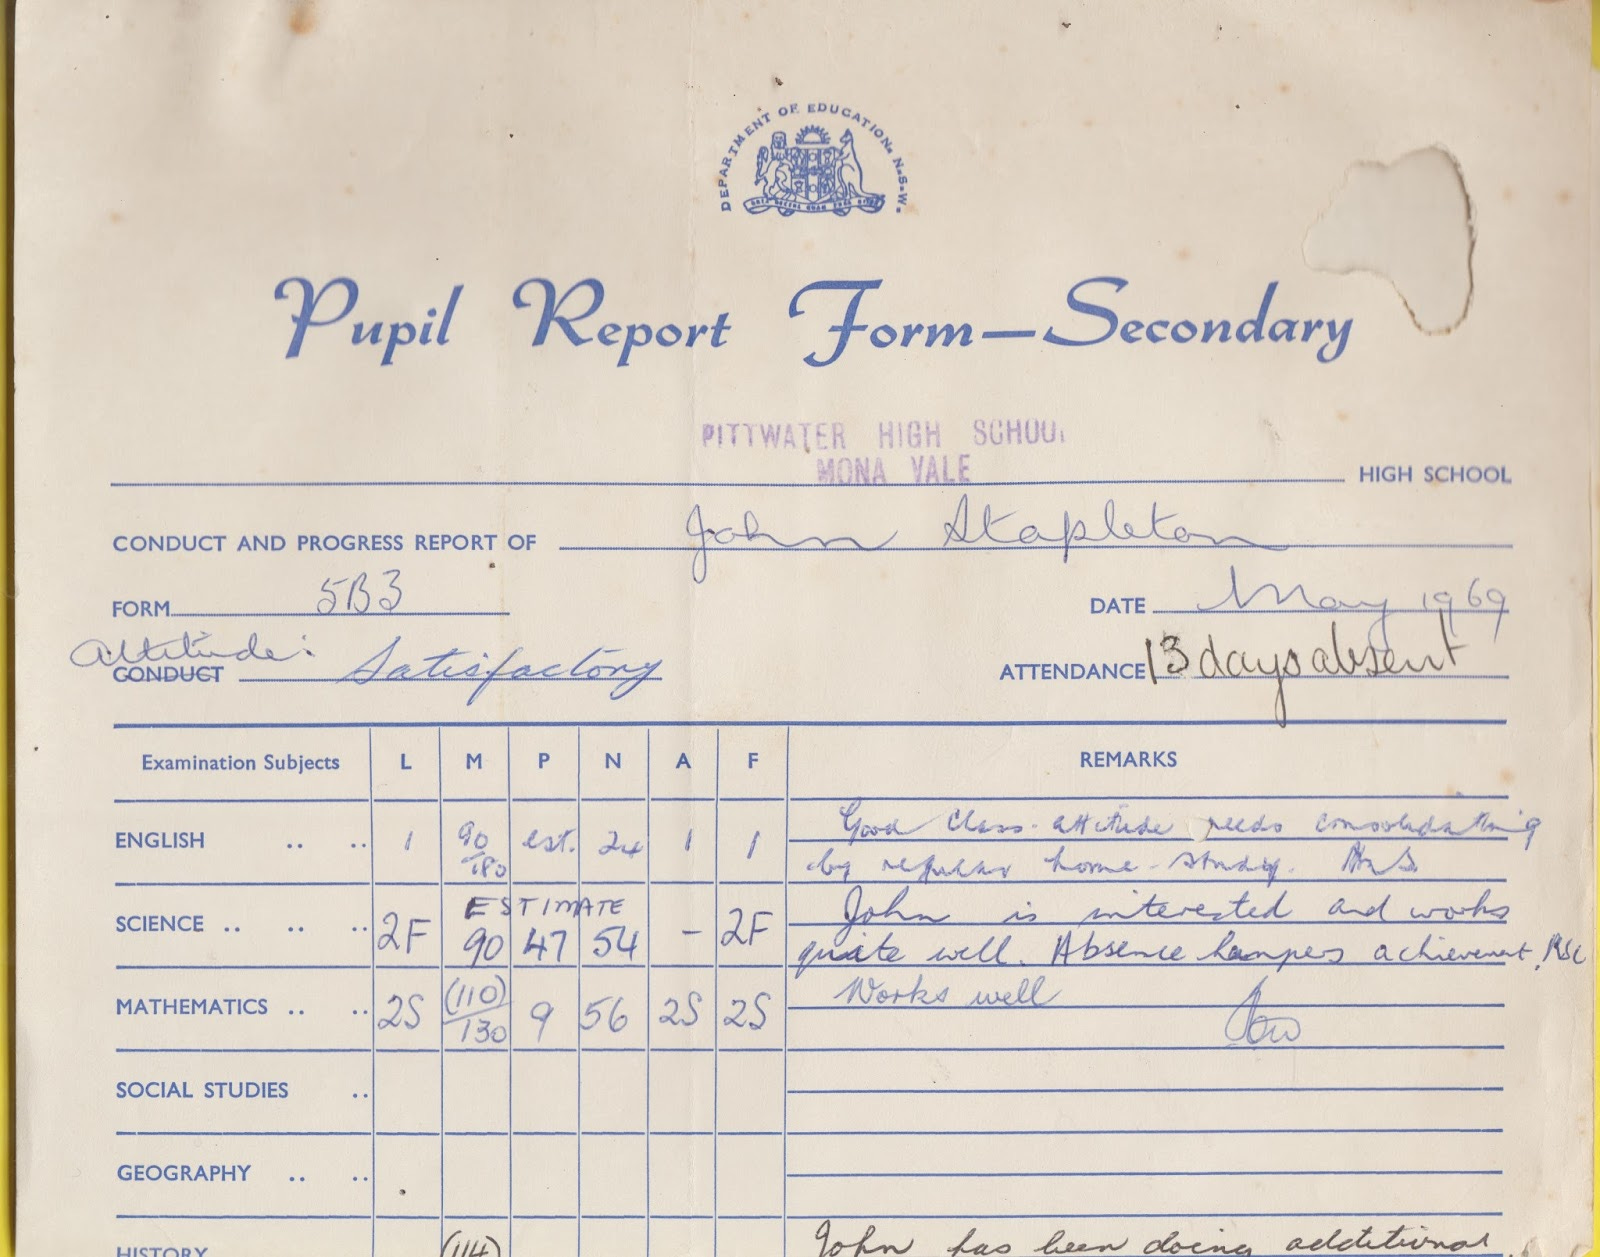 DEPARTMENT OF EDUCATION. N.S.W.
Pupil Report Form—Secondary
PITTWATER HIGH SCHOOL
MONA VALE
HIGH SCHOOL
CONDUCT AND PROGRESS REPORT OF John Stapleton
FORM 5B3 DATE May 1969
Attitude:
CONDUCT Satisfactory ATTENDANCE 13 days absent
Examination Subjects L M P N A F REMARKS
ENGLISH .. .. 1 90/180 est. 24 1 1 Good class-attitude needs consolidating
by regular home-study.
ESTIMATE John is interested and works
SCIENCE .. .. .. 2F 90 47 54 - 2F quite well. Absence hampers achievement.
MATHEMATICS .. .. 2S (110)/130 9 56 2S 2S Works well
SOCIAL STUDIES ..
GEOGRAPHY .. ..
HISTORY (114) John has been doing additional